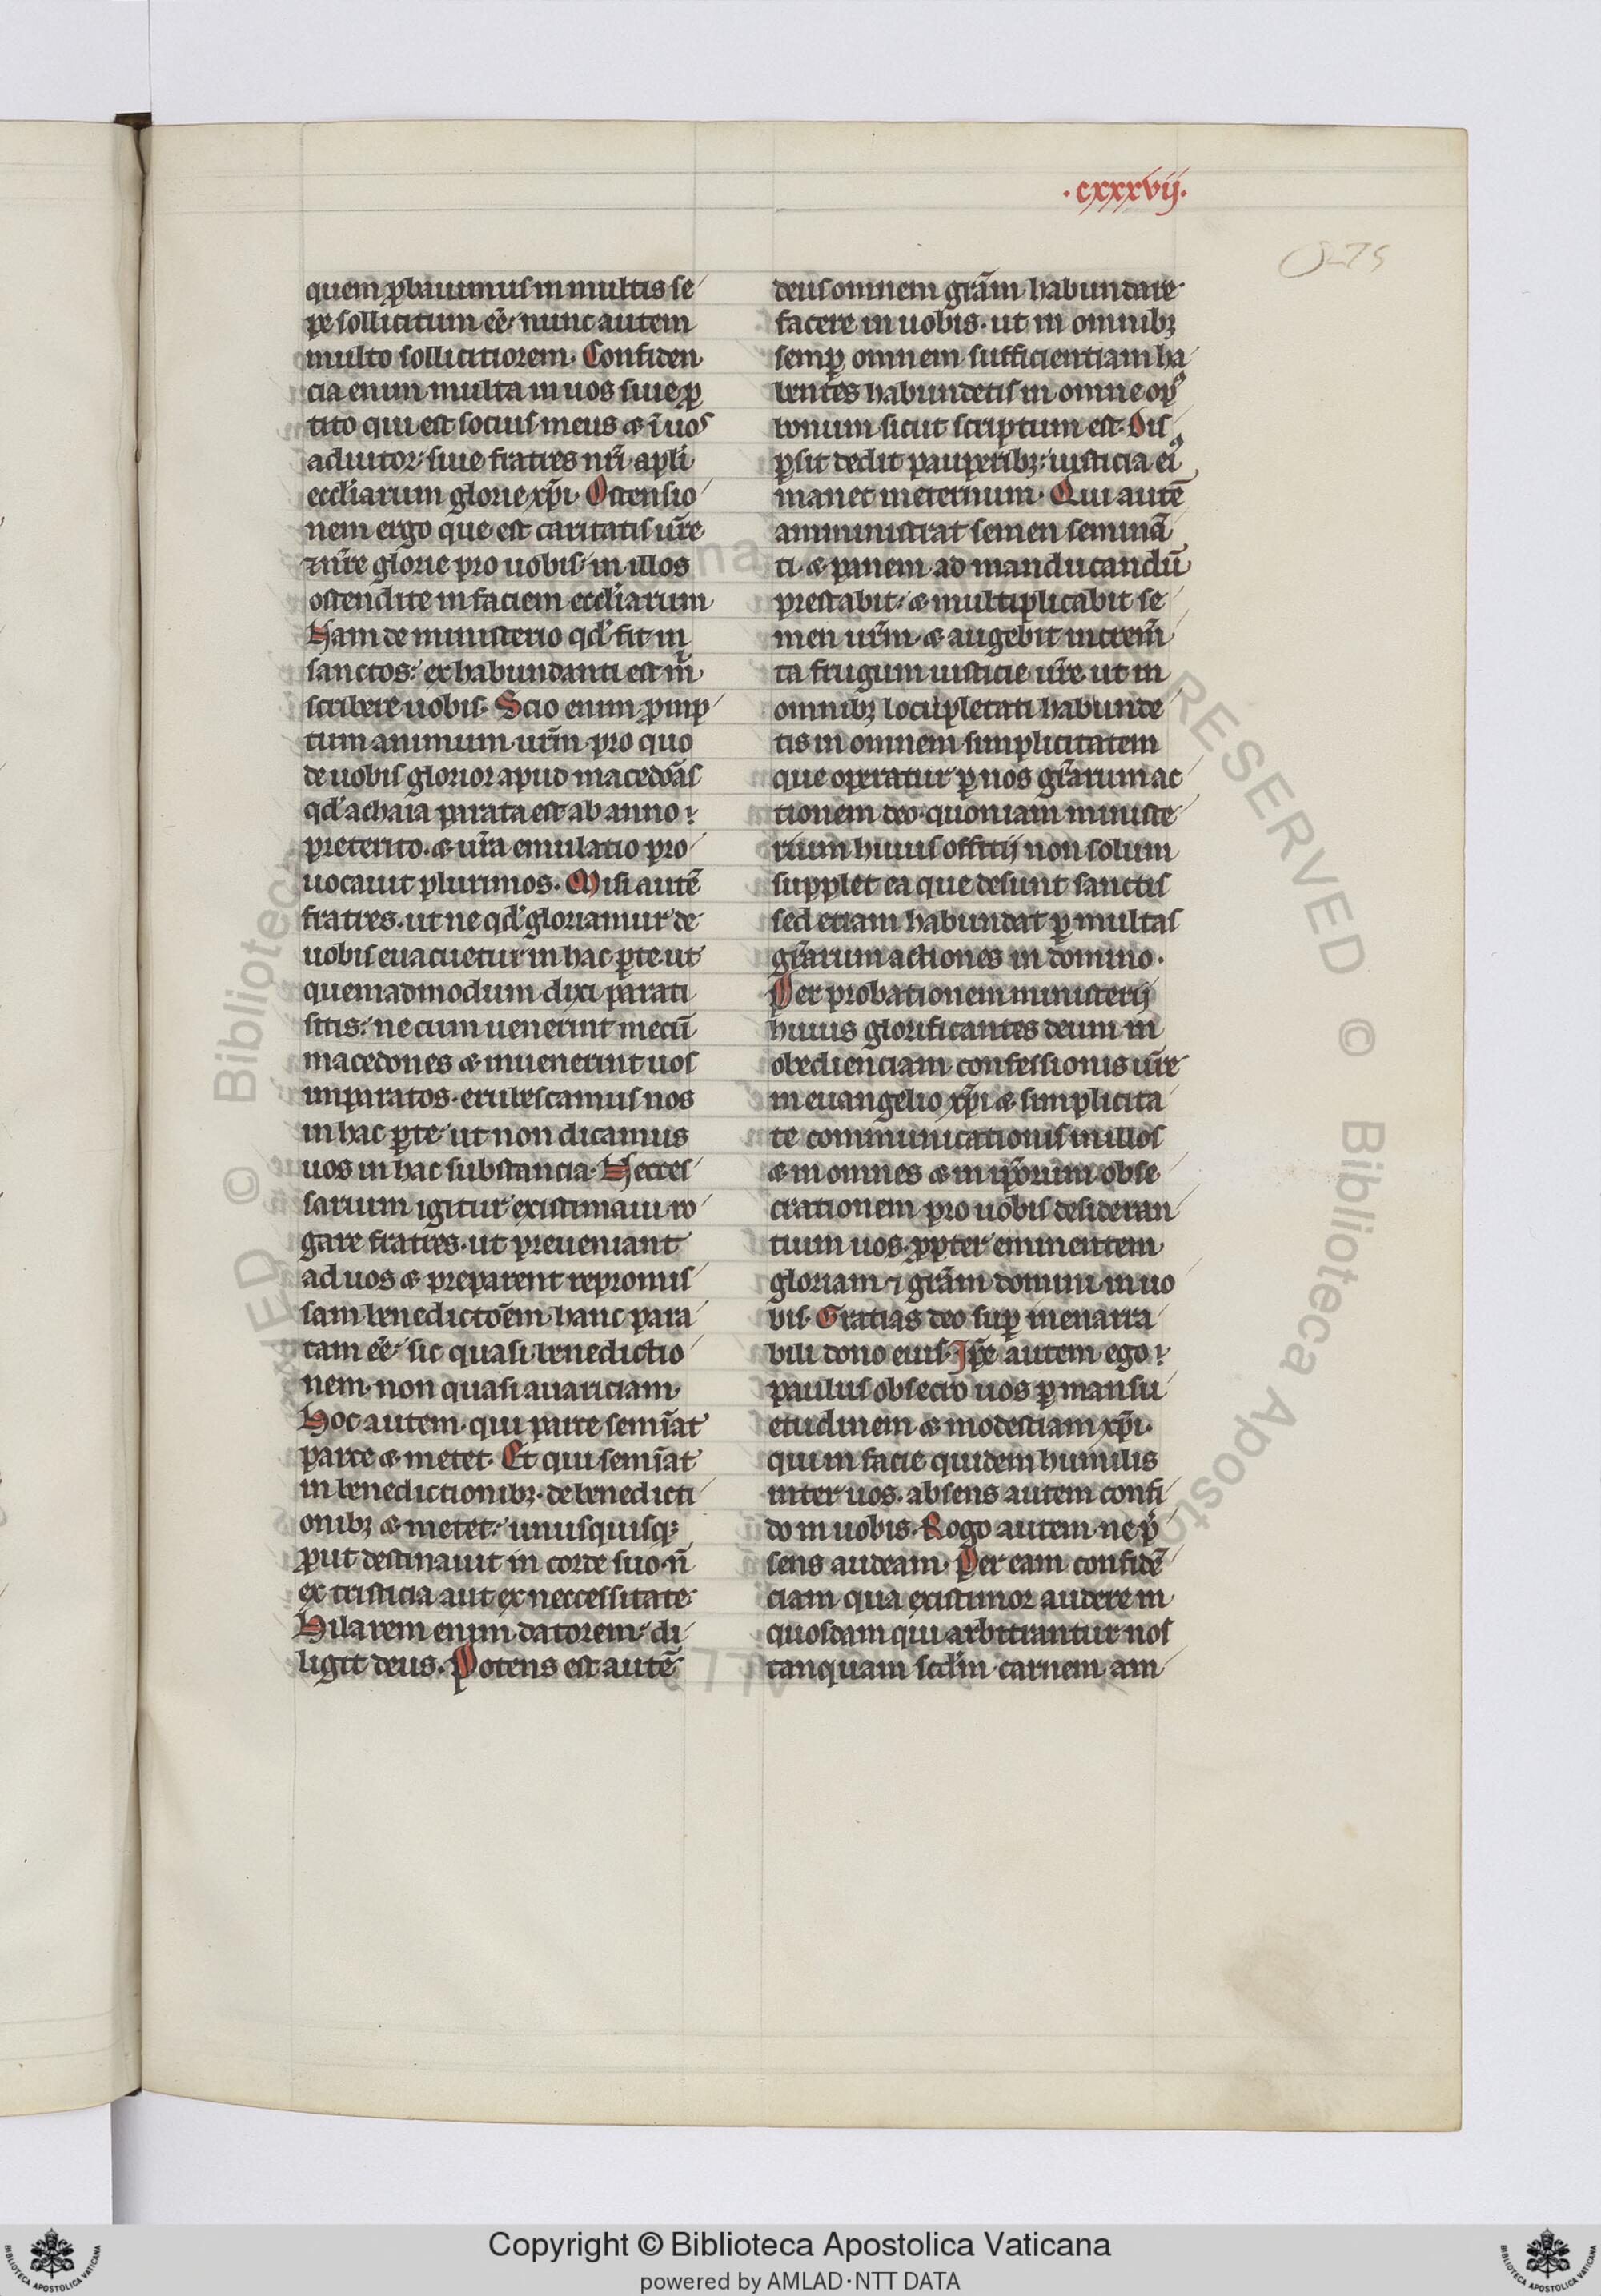 .cxxxvij.
quem ꝓbauimus in multis se
pe sollicitum eē. nunc autem
multo sollicitiorem. Confiden
cia enim multa in uos siue ꝓ
tito qui est socius meus & ī uos
adiutor. siue fratres nr̄i apl̄i
eccl̄iarum glorie xp̄i. Ostensio
nem ergo que est caritatis ur̄e
⁊ nr̄e glorie pro uobis. in illos
ostendite in faciem eccl̄iarum
Nam de ministerio qd̓ fit in
sanctos. ex habundanti est m̄
scribere uobis. Scio enim ꝓmp
tum animum ur̄m pro quo
de uobis glorior apud macedōas
qd̓ achaia parata est ab anno
preterito. & ur̄a emulatio pro
uocauit plurimos. Misi autē
fratres. ut ne qd̓ gloriamur de
uobis euacuetur in hac ꝑte ut
quemadmodum dixi parati
sitis. ne cum uenerint mecū
macedones & inuenerint uos
imparatos. erubescamus nos
in hac ꝑte. ut non dicamus
uos in hac substancia. Necces
sarium igitur existimaui ro
gare fratres. ut preueniant
ad uos & preparent repromis
sam benedictōem hanc para
tam eē. sic quasi benedictio
nem. non quasi auariciam.
Hoc autem. qui parce semīat
parce & metet. Et qui semīat
in benedictionibꝫ. de benedicti
onibꝫ & metet. unusquisqꝫ
ꝓut destinauit in corde suo. n̄
ex tristicia aut ex neccessitate.
Hilarem enim datorem di
ligit deus. Potens est autē
deus omnem gr̄am habundare
facere in uobis. ut in omnibꝫ
semꝑ omnem sufficientiam ha
bentes habundetis in omne opꝰ
bonum sicut scriptum est. Dis
ꝑsit dedit pauperibꝫ. iusticia eiꝰ
manet in eternum. Qui autē
amministrat semen seminā
ti. & panem ad manducandū
prestabit. & multiplicabit se
men ur̄m. & augebit increm̄
ta frugum iusticie ur̄e. ut in
omnibꝫ locupletati habunde
tis in omnem simplicitatem
que operatur ꝑ nos gr̄arum ac
tionem deo. quoniam ministe
rium huius officij non solum
supplet ea que desunt sanctis
sed etiam habundat ꝑ multas
gr̄arum actiones in domino.
Per probationem ministerij
huius glorificantes deum in
obedienciam confessionis ur̄e
in euangelio xp̄i & simplicita
te communicationis in illos
& in omnes & in ip̄orum obse
crationem pro uobis desideran
tium uos. ꝓpter eminentem
gloriam ⁊ gr̄am domini in uo
bis. Gratias deo suꝑ inenarra
bili dono eius. Ip̄e autem ego
paulus obsecro uos ꝑ mansu
etudinem & modestiam xp̄i.
qui in facie quidem humilis
inter uos. absens autem confi
do in uobis. Rogo autem ne p̄
sens audeam. Per eam confidē
ciam qua existimor audere in
quosdam qui arbitrantur nos
tanquam scd̄m carnem am
Copyright © Biblioteca Apostolica Vaticana
powered by AMLAD·NTT DATA